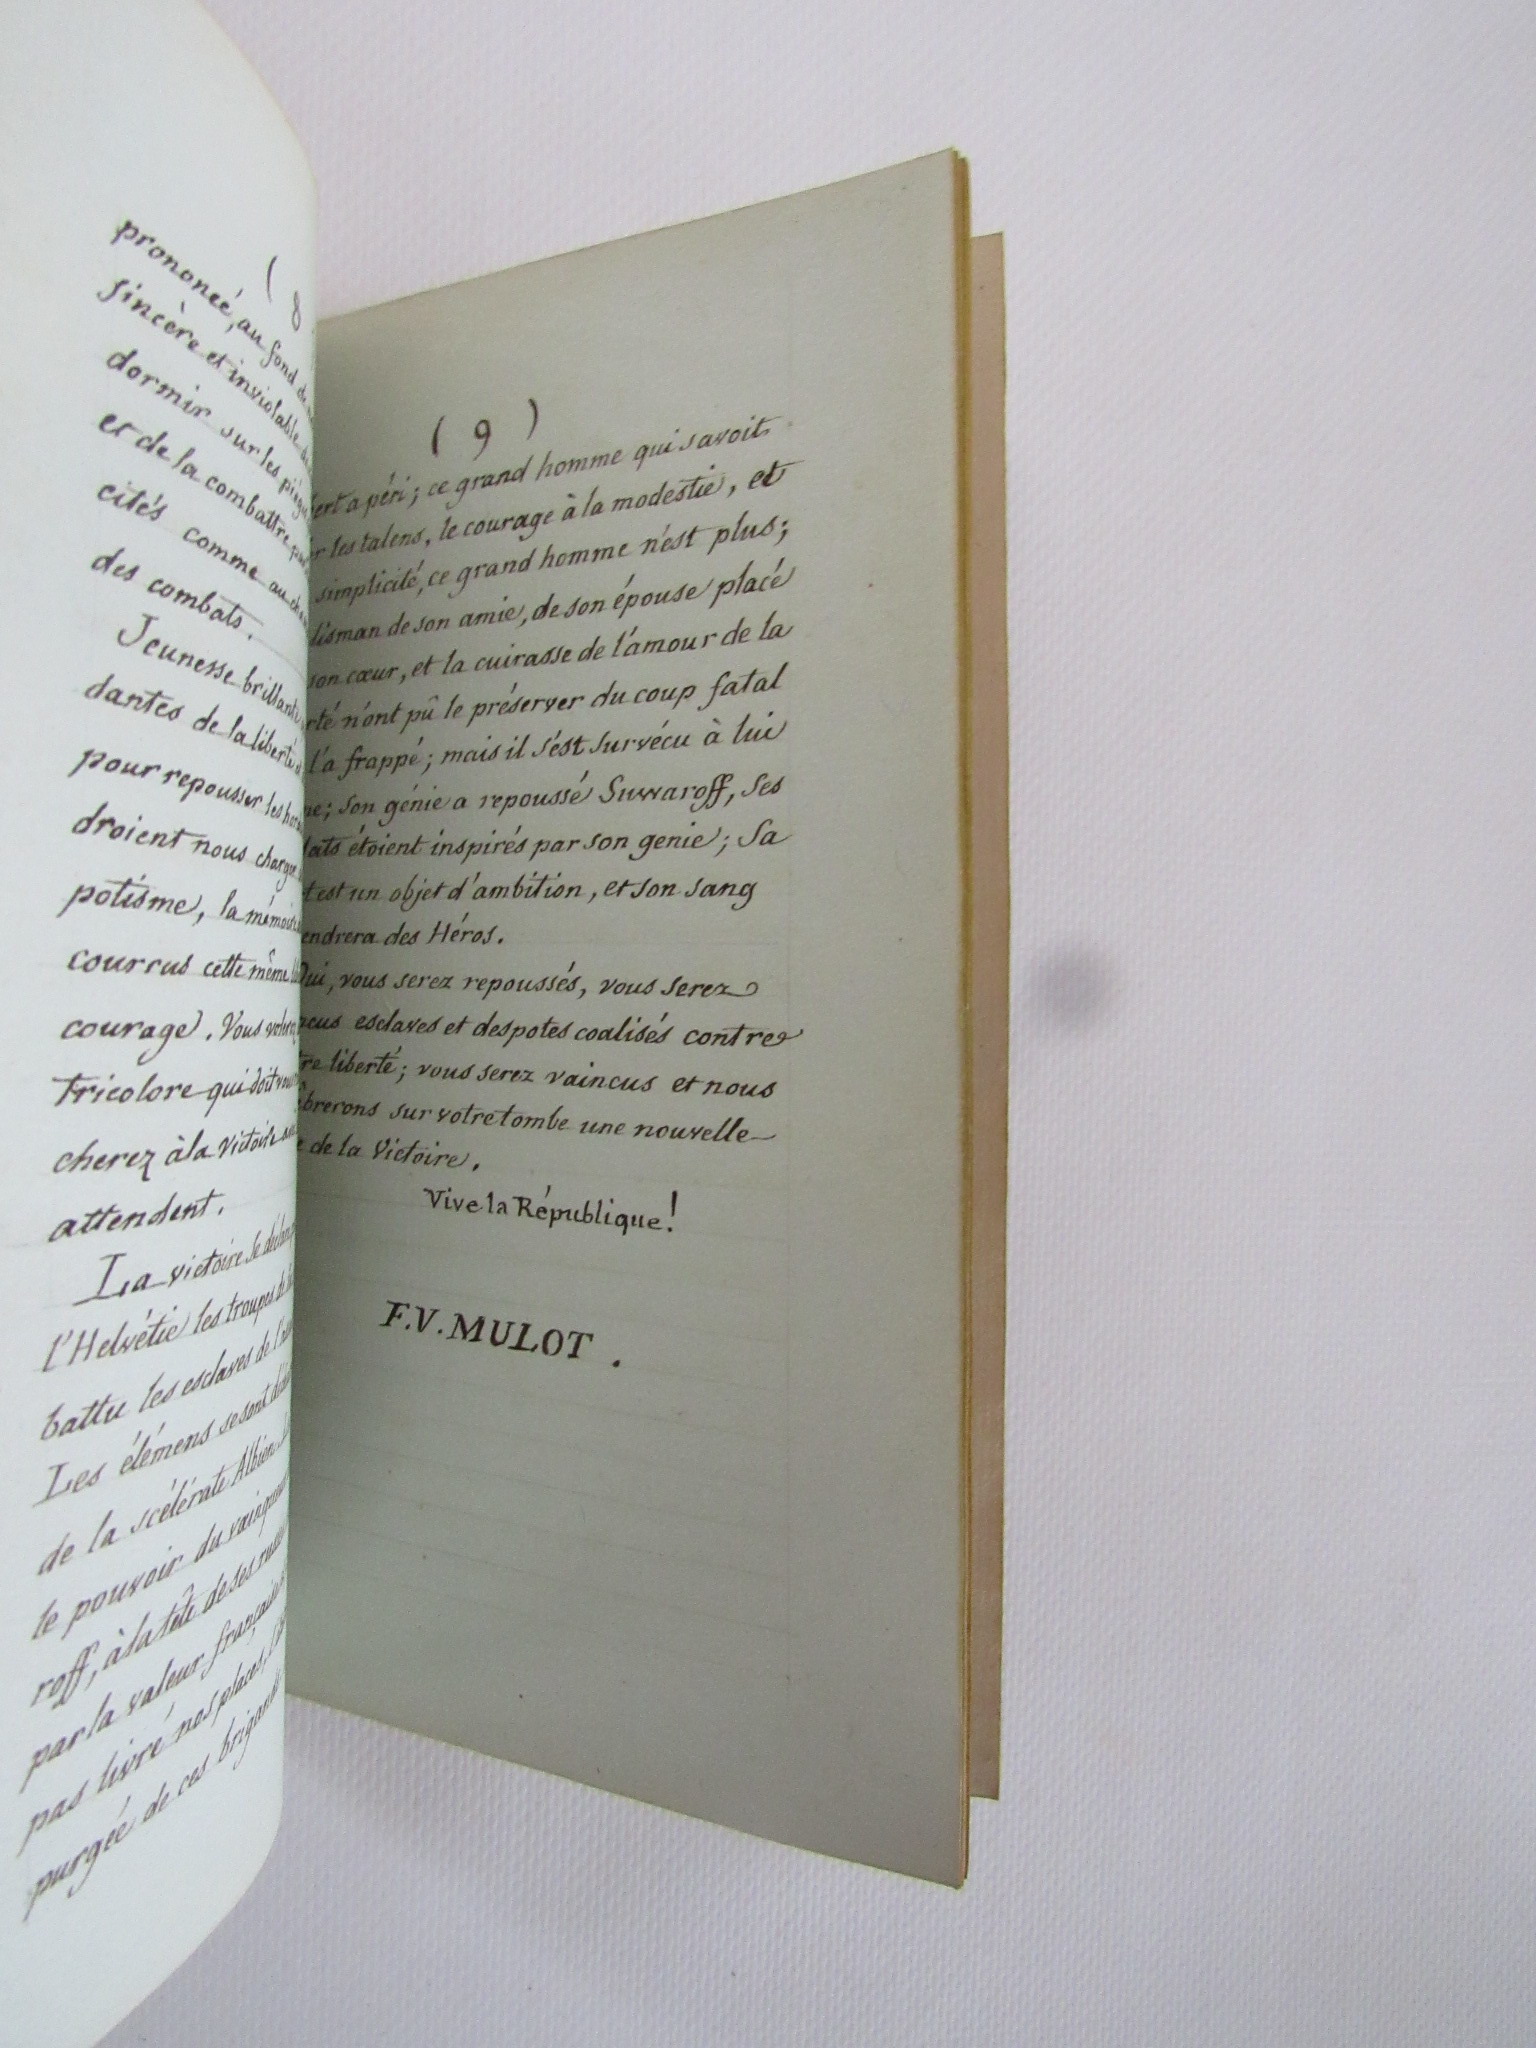 ( 8
prononcé, au fond de
sincère et inviolable
dormir sur les
et de la combattre
cités comme au
des combats.
Jeunesse brillante
dantes de la liberté
pour repousser les
droient nous charger
potisme, la
courrus cette même
courage. Vous
tricolore qui doit
cherez à la victoire
attendent.
La victoire se
l'Helvétie les troupes de
battu les esclaves de
Les élémens se sont
de la scélérate Albion
le pouvoir du
roff, à la tête de ses
par la valeur française
pas livré nos places,
purgée de ces
( 9 )
a péri; ce grand homme qui savoit
les talens, le courage à la modestie, et
simplicité, ce grand homme n'est plus;
de son amie, de son épouse placé
son cœur, et la cuirasse de l'amour de la
n'ont pû le préserver du coup fatal
l'a frappé; mais il s'est survécu à lui
son génie a repoussé Suwaroff, ses
étoient inspirés par son genie; sa
est un objet d'ambition, et son sang
des Héros.
Oui, vous serez repoussés, vous serez
esclaves et despotes coalisés contre
liberté; vous serez vaincus et nous
sur votre tombe une nouvelle
de la Victoire.
Vive la République!
F.V. MULOT.